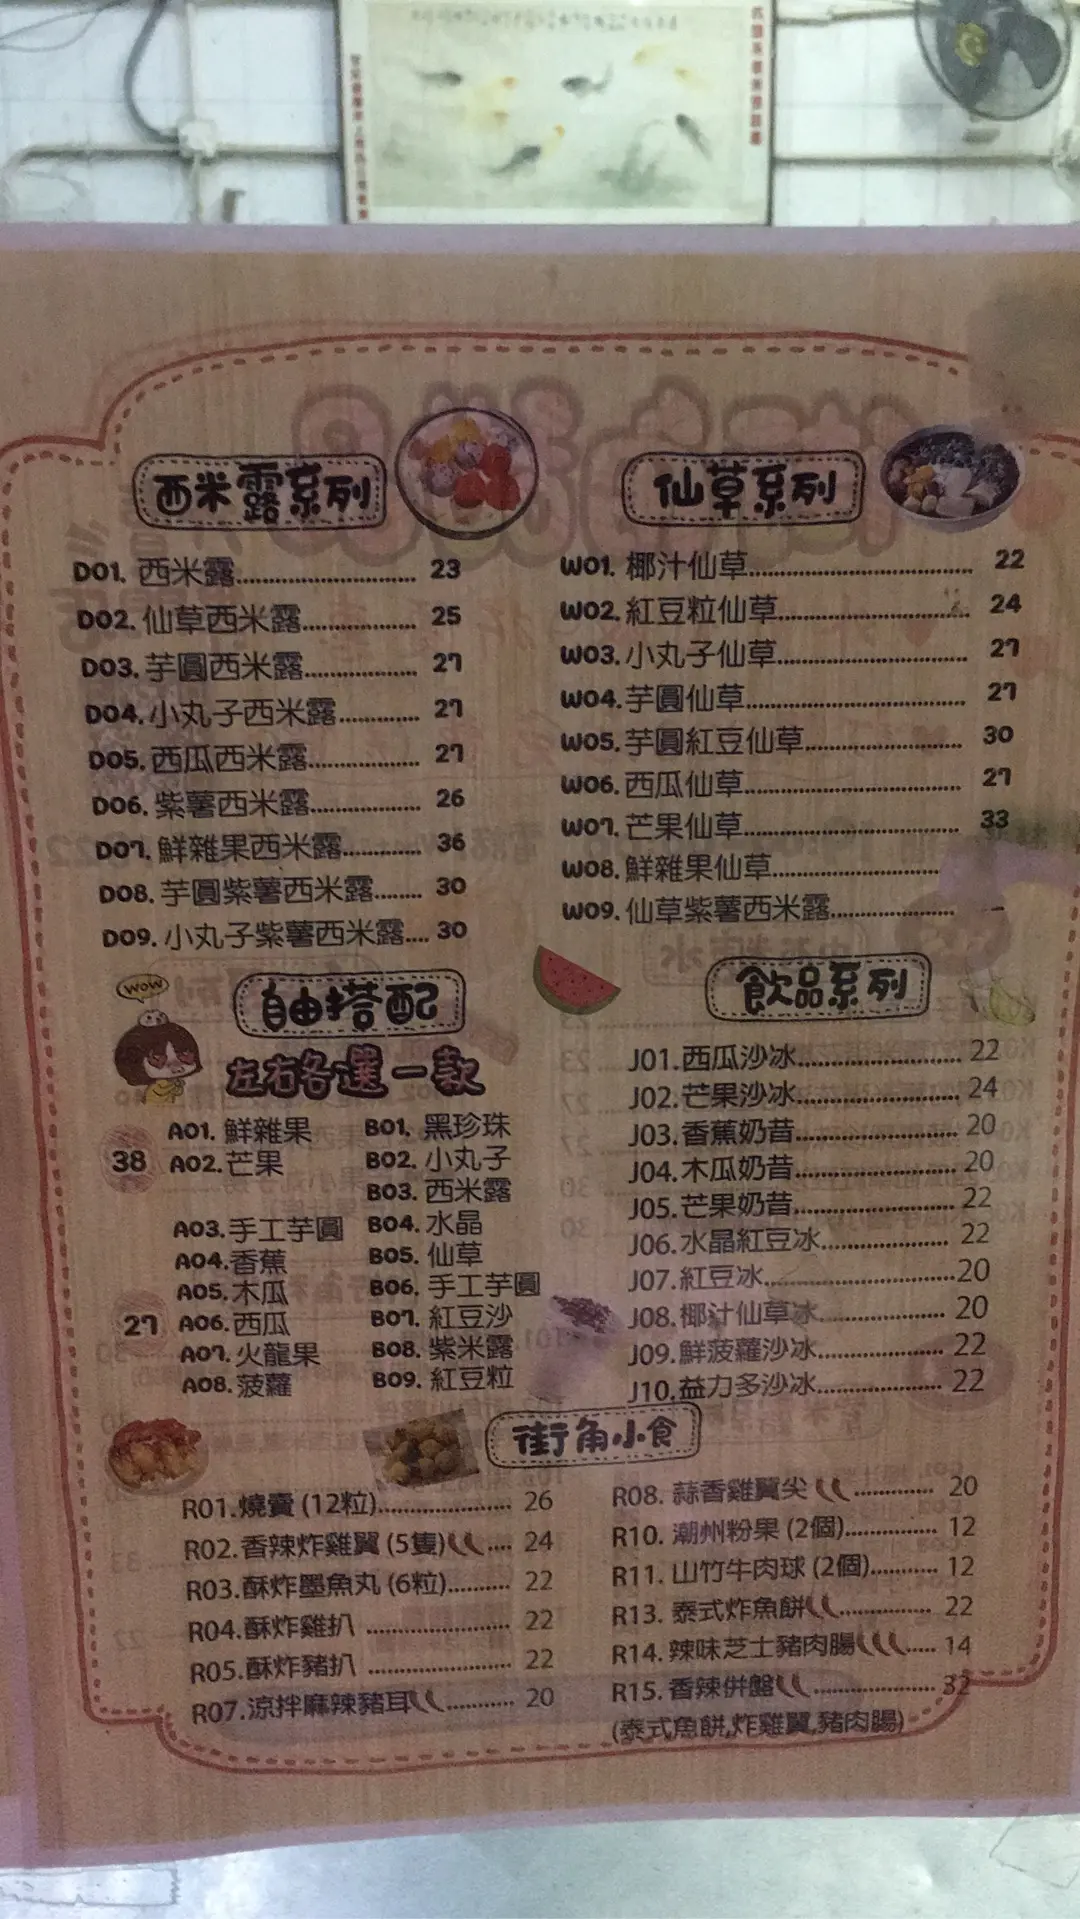 西米露系列
D01. 西米露 23
D02. 仙草西米露 25
D03. 芋圓西米露 27
D04. 小丸子西米露 27
D05. 西瓜西米露 27
D06. 紫薯西米露 26
D07. 鮮雜果西米露 36
D08. 芋圓紫薯西米露 30
D09. 小丸子紫薯西米露 30
仙草系列
W01. 椰汁仙草 22
W02. 紅豆粒仙草 24
W03. 小丸子仙草 27
W04. 芋圓仙草 27
W05. 芋圓紅豆仙草 30
W06. 西瓜仙草 27
W07. 芒果仙草 33
W08. 鮮雜果仙草
W09. 仙草紫薯西米露
WOW
自由搭配
左右各選一款
A01. 鮮雜果 B01. 黑珍珠
38 A02. 芒果 B02. 小丸子
B03. 西米露
A03. 手工芋圓 B04. 水晶
A04. 香蕉 B05. 仙草
A05. 木瓜 B06. 手工芋圓
27 A06. 西瓜 B07. 紅豆沙
A07. 火龍果 B08. 紫米露
A08. 菠蘿 B09. 紅豆粒
飲品系列
J01. 西瓜沙冰 22
J02. 芒果沙冰 24
J03. 香蕉奶昔 20
J04. 木瓜奶昔 20
J05. 芒果奶昔 22
J06. 水晶紅豆冰 22
J07. 紅豆冰 20
J08. 椰汁仙草冰 20
J09. 鮮菠蘿沙冰 22
J10. 益力多沙冰 22
街角小食
R01. 燒賣 (12粒) 26
R02. 香辣炸雞翼 (5隻) 24
R03. 酥炸墨魚丸 (6粒) 22
R04. 酥炸雞扒 22
R05. 酥炸豬扒 22
R07. 涼拌麻辣豬耳 20
R08. 蒜香雞翼尖 20
R10. 潮州粉果 (2個) 12
R11. 山竹牛肉球 (2個) 12
R13. 泰式炸魚餅 22
R14. 辣味芝士豬肉腸 14
R15. 香辣併盤 32
(泰式魚餅,炸雞翼,豬肉腸)